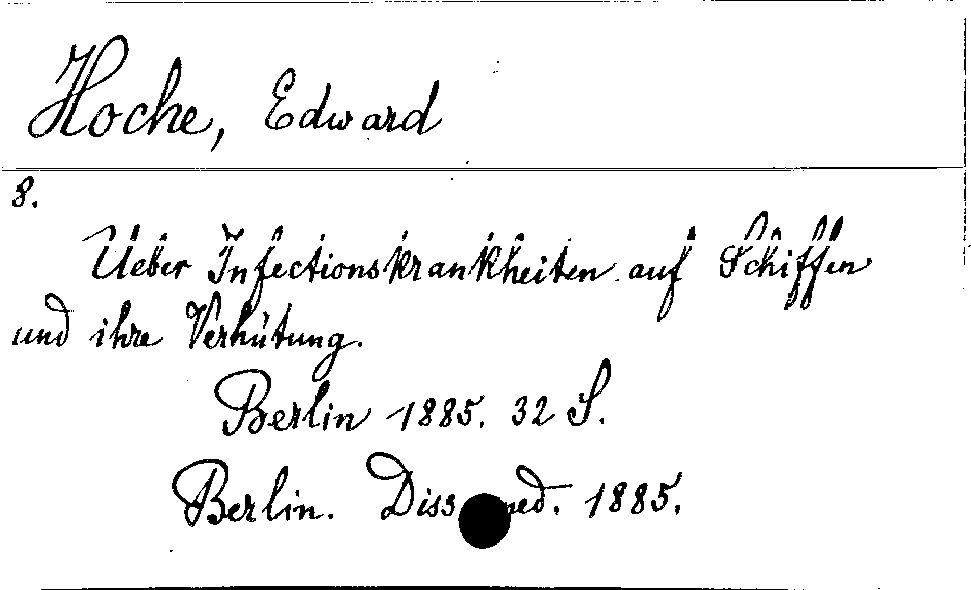 Hoche, Edward
8.
Ueber Infectionskrankheiten auf Schiffen
und ihre Verhütung.
Berlin 1885. 32 S.
Berlin. Diss med. 1885.